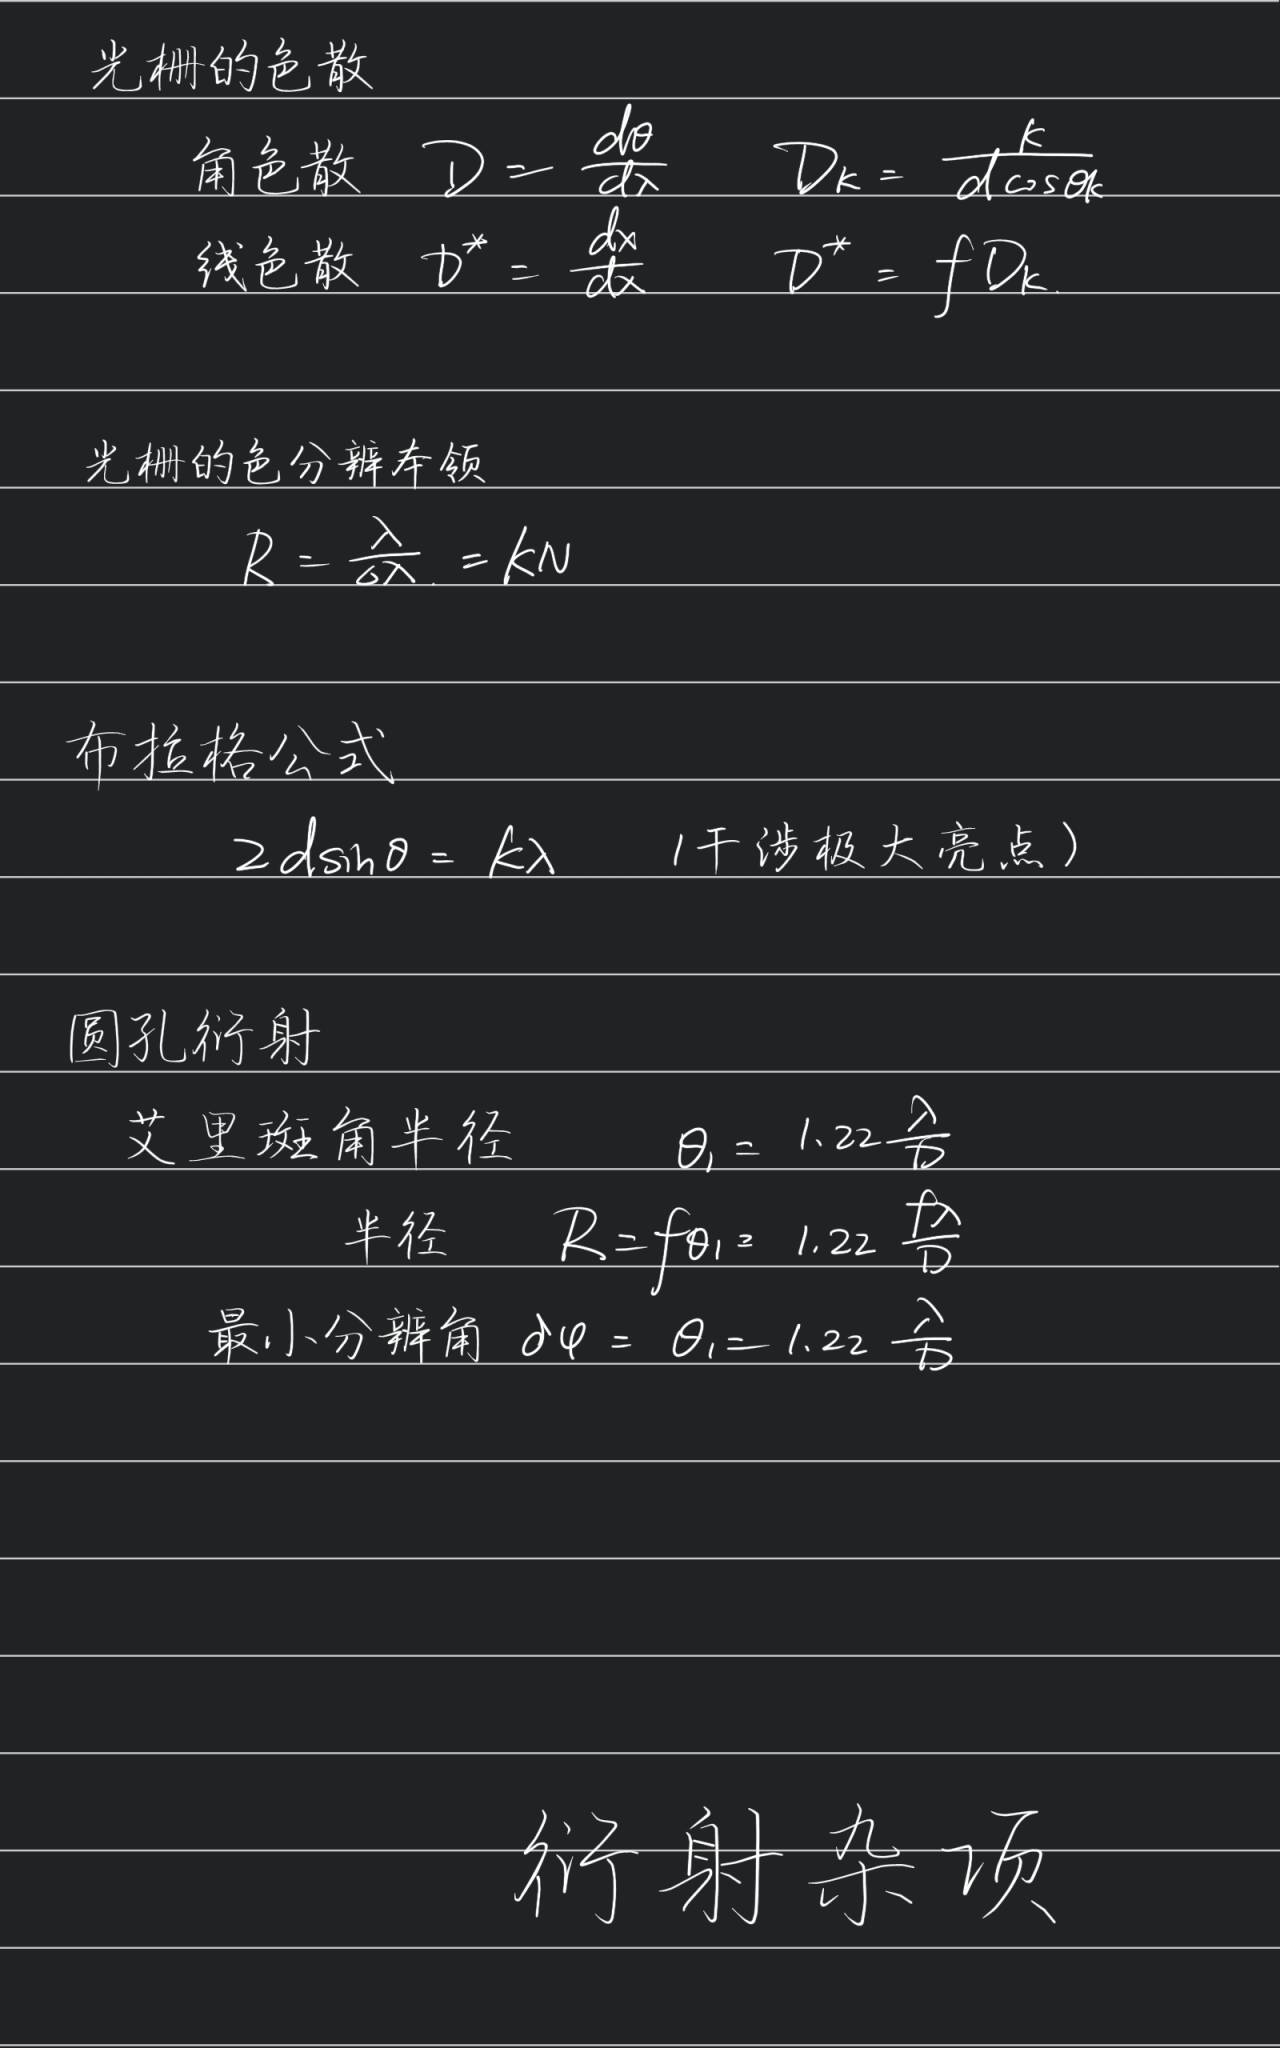 光栅的色散
角色散 D = dθ/dλ D_k = k/(d cosθ_k)
线色散 D* = dx/dx D* = f D_k.
光栅的色分辨本领
R = λ/δλ. = kN
布拉格公式
2dsinθ = kλ (干涉极大亮点)
圆孔衍射
艾里斑角半径 θ₁ = 1.22 λ/D
半径 R = fθ₁ = 1.22 fλ/D
最小分辨角 δφ = θ₁ = 1.22 λ/D
衍射杂项